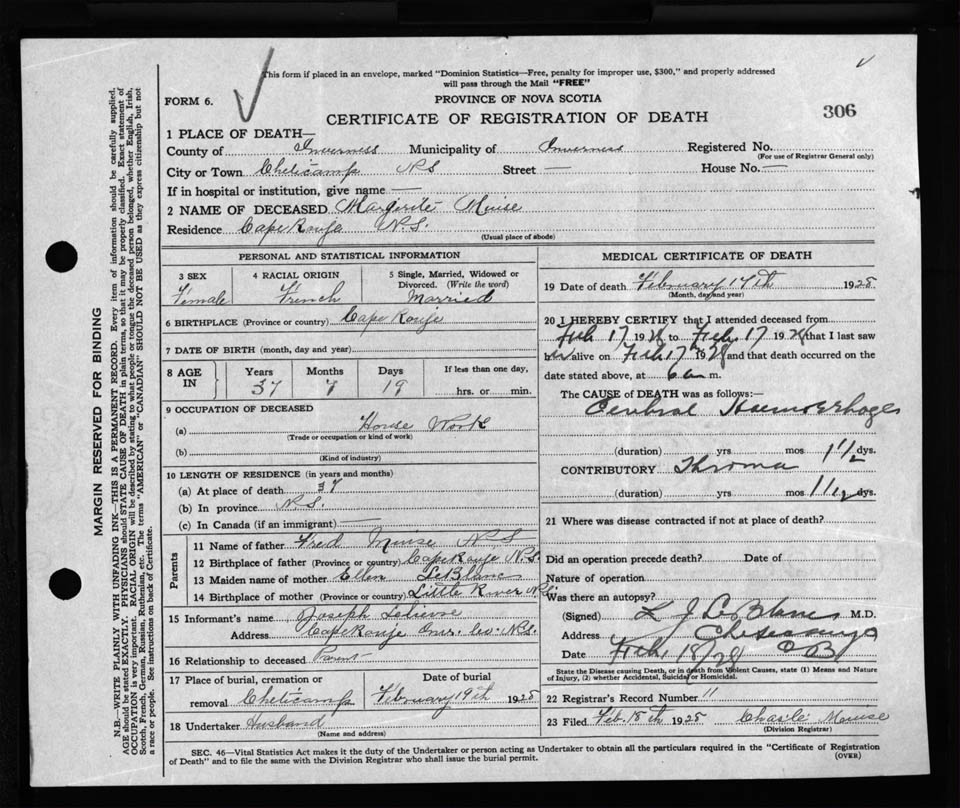 This form if placed in an envelope, marked "Dominion Statistics—Free, penalty for improper use, $300," and properly addressed
will pass through the Mail "FREE"
FORM 6.
PROVINCE OF NOVA SCOTIA
306
CERTIFICATE OF REGISTRATION OF DEATH
1 PLACE OF DEATH—
County of Inverness Municipality of Inverness Registered No.
(For use of Registrar General only)
City or Town Cheticamp N S Street — House No. —
If in hospital or institution, give name —
2 NAME OF DECEASED Margerite Muise
Residence Cape Rouge N.S.
(Usual place of abode)
PERSONAL AND STATISTICAL INFORMATION
3 SEX 4 RACIAL ORIGIN 5 Single, Married, Widowed or
Divorced. (Write the word)
Female French Married
6 BIRTHPLACE (Province or country) Cape Rouge
7 DATE OF BIRTH (month, day and year)
8 AGE IN Years Months Days If less than one day,
37 7 19 hrs. or min.
9 OCCUPATION OF DECEASED
(a) House Work
(Trade or occupation or kind of work)
(b)
(Kind of industry)
10 LENGTH OF RESIDENCE (in years and months)
(a) At place of death 37
(b) In province N.S.
(c) In Canada (if an immigrant) —
Parents
11 Name of father Fred Muise N S
12 Birthplace of father (Province or country) Cape Rouge N.S.
13 Maiden name of mother Ellen LeBlanc
14 Birthplace of mother (Province or country) Little River N.S.
15 Informant's name Joseph
Address Cape Rouge Inv. Co. N.S.
16 Relationship to deceased Parent
17 Place of burial, cremation or Date of burial
removal Cheticamp February 19th 1928
18 Undertaker Husband
(Name and address)
MEDICAL CERTIFICATE OF DEATH
19 Date of death February 17th 1928
(Month, day and year)
20 I HEREBY CERTIFY that I attended deceased from
Feb 17 1928 to Feb. 17 1928 that I last saw
her alive on Feb 17 1928 and that death occurred on the
date stated above, at 6 a m.
The CAUSE of DEATH was as follows:—
Cerebral Haemorrhage
(duration) yrs mos 1 1/2 dys.
CONTRIBUTORY
(duration) yrs mos 1 1/2 dys.
21 Where was disease contracted if not at place of death?
Did an operation precede death? Date of
Nature of operation
Was there an autopsy?
(Signed) L J LeBlanc M.D.
Address Cheticamp
Date Feb. 18/28 CB
State the Disease causing Death, or in death from Violent Causes, state (1) Means and Nature
of Injury, (2) whether Accidental, Suicidal or Homicidal.
22 Registrar's Record Number 11
23 Filed Feb. 18th 1928 Charlie Muise
(Division Registrar)
SEC. 46—Vital Statistics Act makes it the duty of the Undertaker or person acting as Undertaker to obtain all the particulars required in the "Certificate of Registration
of Death" and to file the same with the Division Registrar who shall issue the burial permit. (OVER)
MARGIN RESERVED FOR BINDING
N.B.—WRITE PLAINLY WITH UNFADING INK—THIS IS A PERMANENT RECORD. Every item of information should be carefully supplied.
AGE should be stated EXACTLY. PHYSICIANS should STATE CAUSE OF DEATH in plain terms, so that it may be properly classified. Exact statement of
OCCUPATION is very important. RACIAL ORIGIN will be described by stating to what people or tongue the deceased person belonged, whether English, Irish,
Scotch, French, German, Russian, Ruthenian, etc. The terms "AMERICAN" or "CANADIAN" SHOULD NOT BE USED as they express citizenship but not
a race or people. See instructions on back of Certificate.